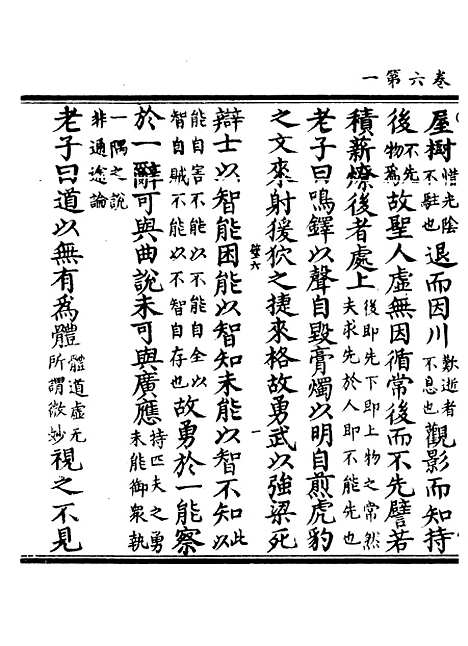 卷六第一
屋樹惜光陰不駐也退而因川歎逝者不息也觀影而知持
後不先物爲故聖人虛無因循常後而不先譬若
積薪燎後者處上後即先下即上物之常然夫求先於人即不能先也
老子曰鳴鐸以聲自毀膏燭以明自煎虎豹
之文來射猨狖之捷來格故勇武以強梁死
辯士以智能困能以智知未能以智不知以此
能自害不能以不能自全以智自賊不能以不智自存也故勇於一能察
於一辭可與曲說未可與廣應持匹夫之勇未能御衆執
一隅之說非通途論
老子曰道以無有爲體體道虛无所謂微妙視之不見